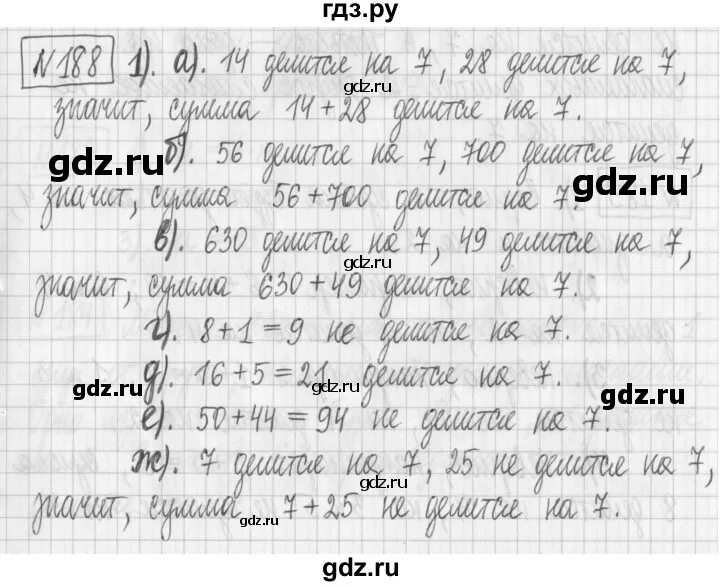 гдз.ру
№188 1). а). 14 делится на 7, 28 делится на 7,
значит, сумма 14+28 делится на 7.
gdz.ru
gdz.ru
б). 56 делится на 7, 700 делится на 7,
gdz.ru
gdz.ru
значит, сумма 56+700 делится на 7.
в). 630 делится на 7, 49 делится на 7,
gdz.ru
значит, сумма 630+49 делится на 7.
г). 8+1=9 не делится на 7.
gdz.ru
д). 16+5=21 делится на 7.
gdz.ru
gdz.ru
gdz.ru
е). 50+44=94 не делится на 7.
gdz.ru
ж). 7 делится на 7, 25 не делится на 7,
gdz.ru
значит, сумма 7+25 не делится на 7.
gdz.ru
gdz.ru
gdz.ru